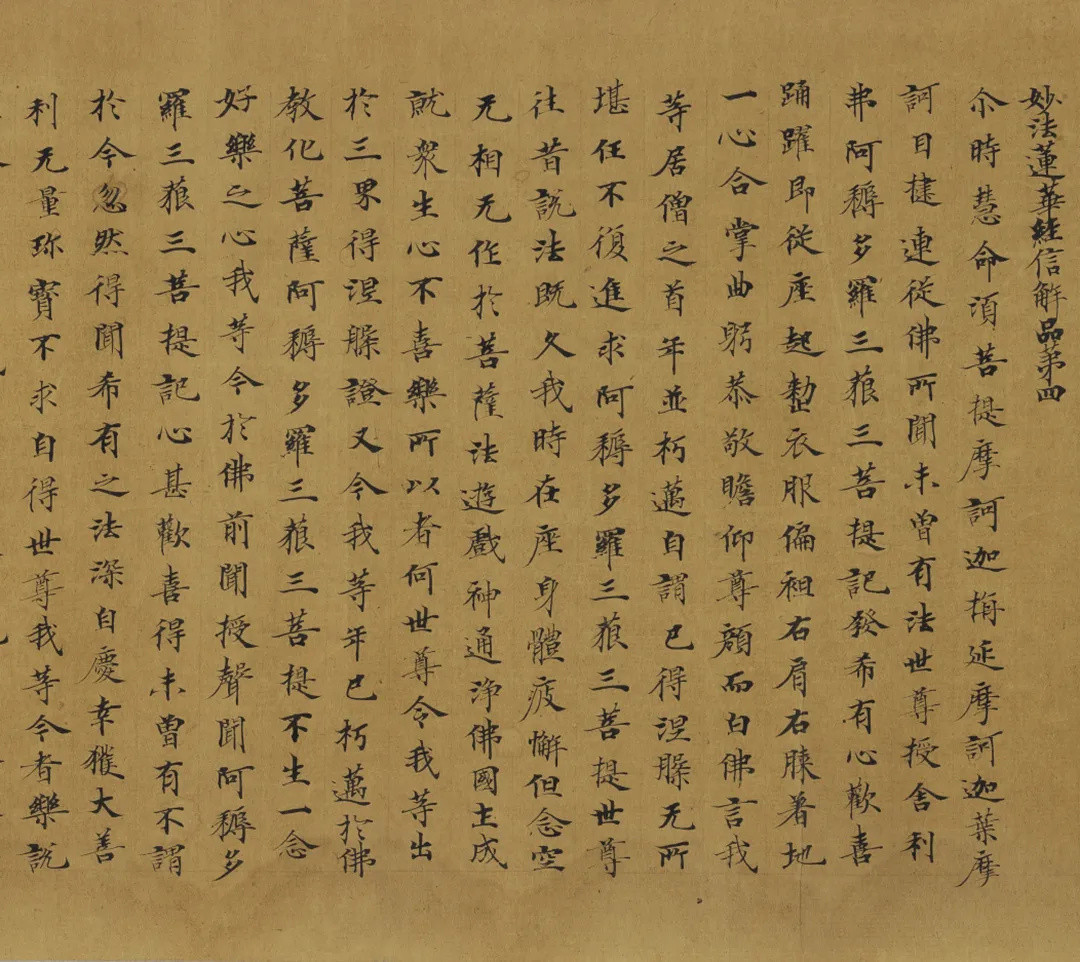 妙法蓮華經信解品第四
尒時慧命湏菩提摩訶迦旃延摩訶迦葉摩
訶目揵連從佛所聞未曾有法世尊授舍利
弗阿耨多羅三藐三菩提記發希有心歡喜
踊躍即從座起整衣服偏袒右肩右膝著地
一心合掌曲躬恭敬瞻仰尊顔而白佛言我
等居僧之首年並朽邁自謂已得涅槃无所
堪任不復進求阿耨多羅三藐三菩提世尊
往昔説法既久我時在座身體疲懈但念空
无相无作於菩薩法遊戲神通淨佛國土成
就衆生心不喜樂所以者何世尊令我等出
於三界得涅槃證又今我等年已朽邁於佛
教化菩薩阿耨多羅三藐三菩提不生一念
好樂之心我等今於佛前聞授聲聞阿耨多
羅三藐三菩提記心甚歡喜得未曾有不謂
於今忽然得聞希有之法深自慶幸獲大善
利无量珎寶不求自得世尊我等今者樂説